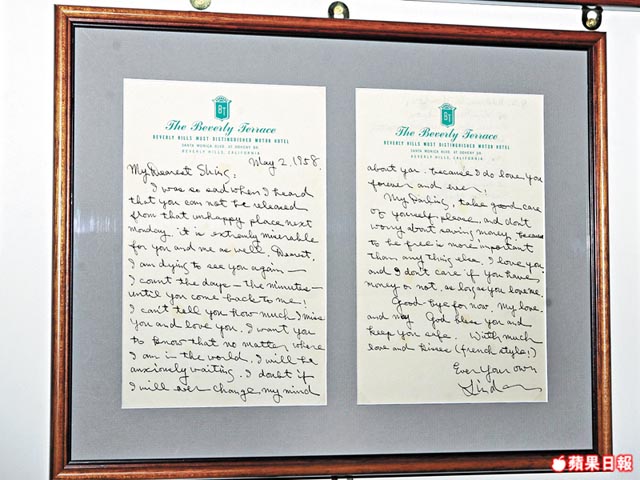 BT
The Beverly Terrace
BEVERLY HILLS MOST DISTINGUISHED MOTOR HOTEL
SANTA MONICA BLVD. AT DOHENY DR.
BEVERLY HILLS, CALIFORNIA
May 2, 1958
My Dearest Shing,
I was so sad when I heard
that you can not be released
from that unhappy place next
monday. it is extremly miserable
for you and me as well. Dearest.
I am dying to see you again —
I count the days — the minutes —
until you come back to me!
I can't tell you how much I miss
you and love you. I want you
to know that no matter where
I am in the world. I will be
anxiously waiting. I doubt if
I will ever change my mind
BT
The Beverly Terrace
BEVERLY HILLS MOST DISTINGUISHED MOTOR HOTEL
SANTA MONICA BLVD. AT DOHENY DR.
BEVERLY HILLS, CALIFORNIA
about you. because I do love you
forever and ever!
My Darling, take good care
of yourself please, and don't
worry about saving money. because
to be free is more important
than any thing else. I love you
and I don't care if you have
money or not, as long as you love me.
Good bye for now, my love.
and may God bless you and
keep you safe. With much
love and kisses (french style!)
Ever your own
Linda
蘋果日報